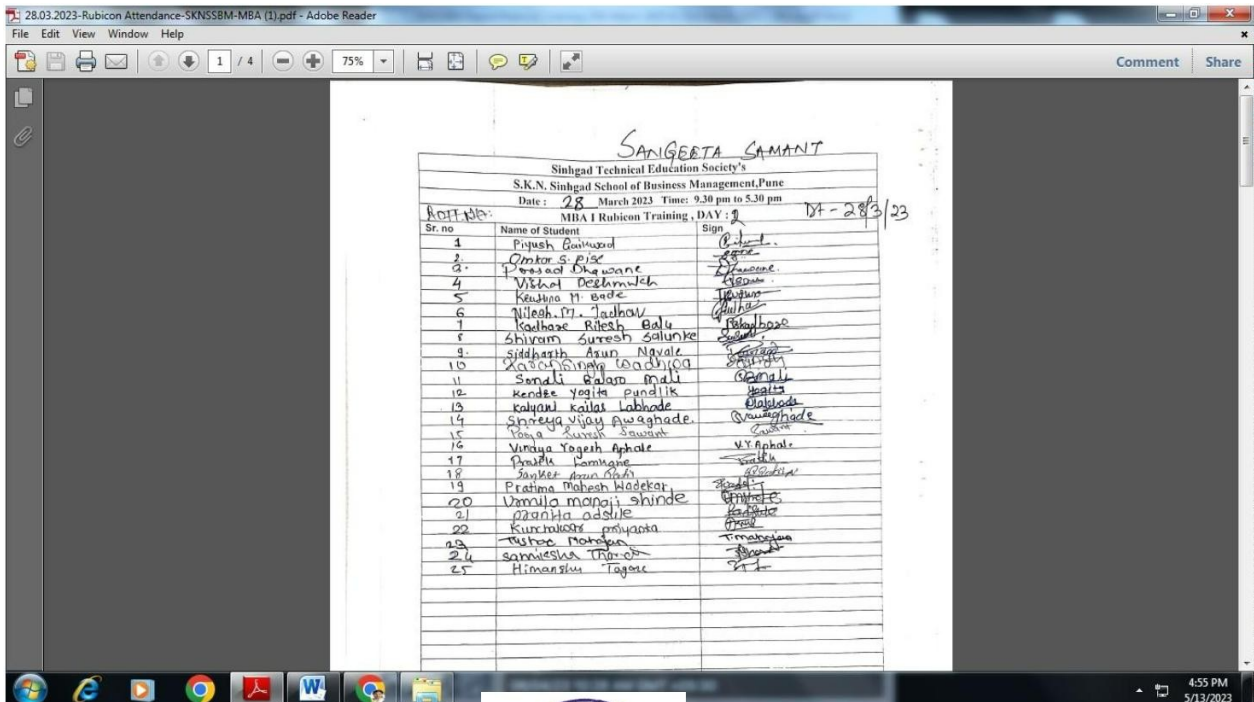 28.03.2023-Rubicon Attendance-SKNSSBM-MBA (1).pdf - Adobe Reader
File Edit View Window Help
1 / 4 75% Comment Share
SANGEETA SAMANT
Sinhgad Technical Education Society's
S.K.N. Sinhgad School of Business Management,Pune
Date : 28 March 2023 Time: 9.30 pm to 5.30 pm
MBA I Rubicon Training , DAY : 2 Dt - 28/3/23
Sr. no Name of Student Sign
1 Piyush Gaikwad
2. Omkar S. Pise
3. Prasad Dhawane
4 Vishal Deshmukh
5 M. Bade
6 Nilesh. M. Jadhav
7 Kadhare Ritesh Balu
8 Shivam Suresh Salunke
9. Siddharth Arun Navale
10 Karansingh Wadhwa
11 Sonali Balaso Mali
12 Kendre Yogita Pundlik Yogita
13 Kalyani Kailas Labhade
14 Shreya Vijay Awaghade.
15 Pooja Suresh Sawant Sawant
16 Vinaya Yogesh Aphale V.Y.Aphale
17 Pratik
18 Sanket Arun
19 Pratima Mahesh Wadekar
20 Urmila manaji shinde
21 pranita adsule
22 priyanka
23 Tushar Mahajan T.mahajan
24
25 Himanshu Tagore
4:55 PM
5/13/2023